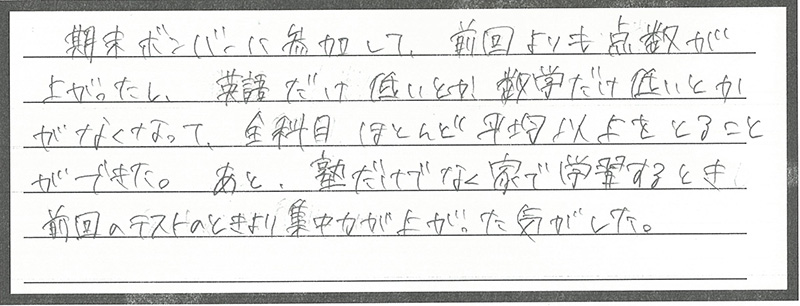 期末ボンバーに参加して、前回よりも点数が
上がったし、英語だけ低いとか数学だけ低いとか
がなくなって、全科目ほとんど平均以上をとること
ができた。あと、塾だけでなく家で学習するとき
前回のテストのときより集中力が上がった気がした。